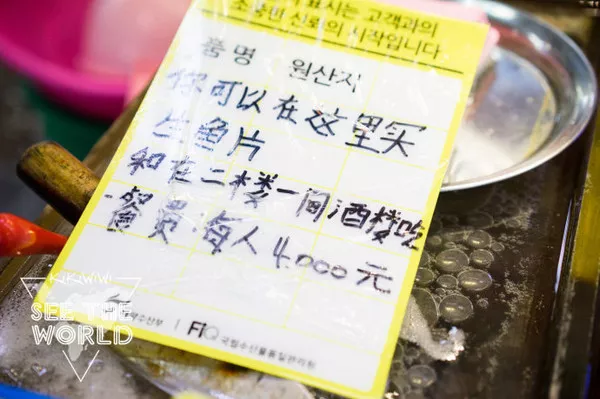 표시는 고객과의
소중한 신뢰의 시작입니다
품명 원산지
你可以在这里买
生鱼片
和在二楼一间酒楼吃
餐費 每人 4,000 元
수산부 | FiQ 국립수산물품질관리원
KiKiWiWi
SEE THE
WORLD